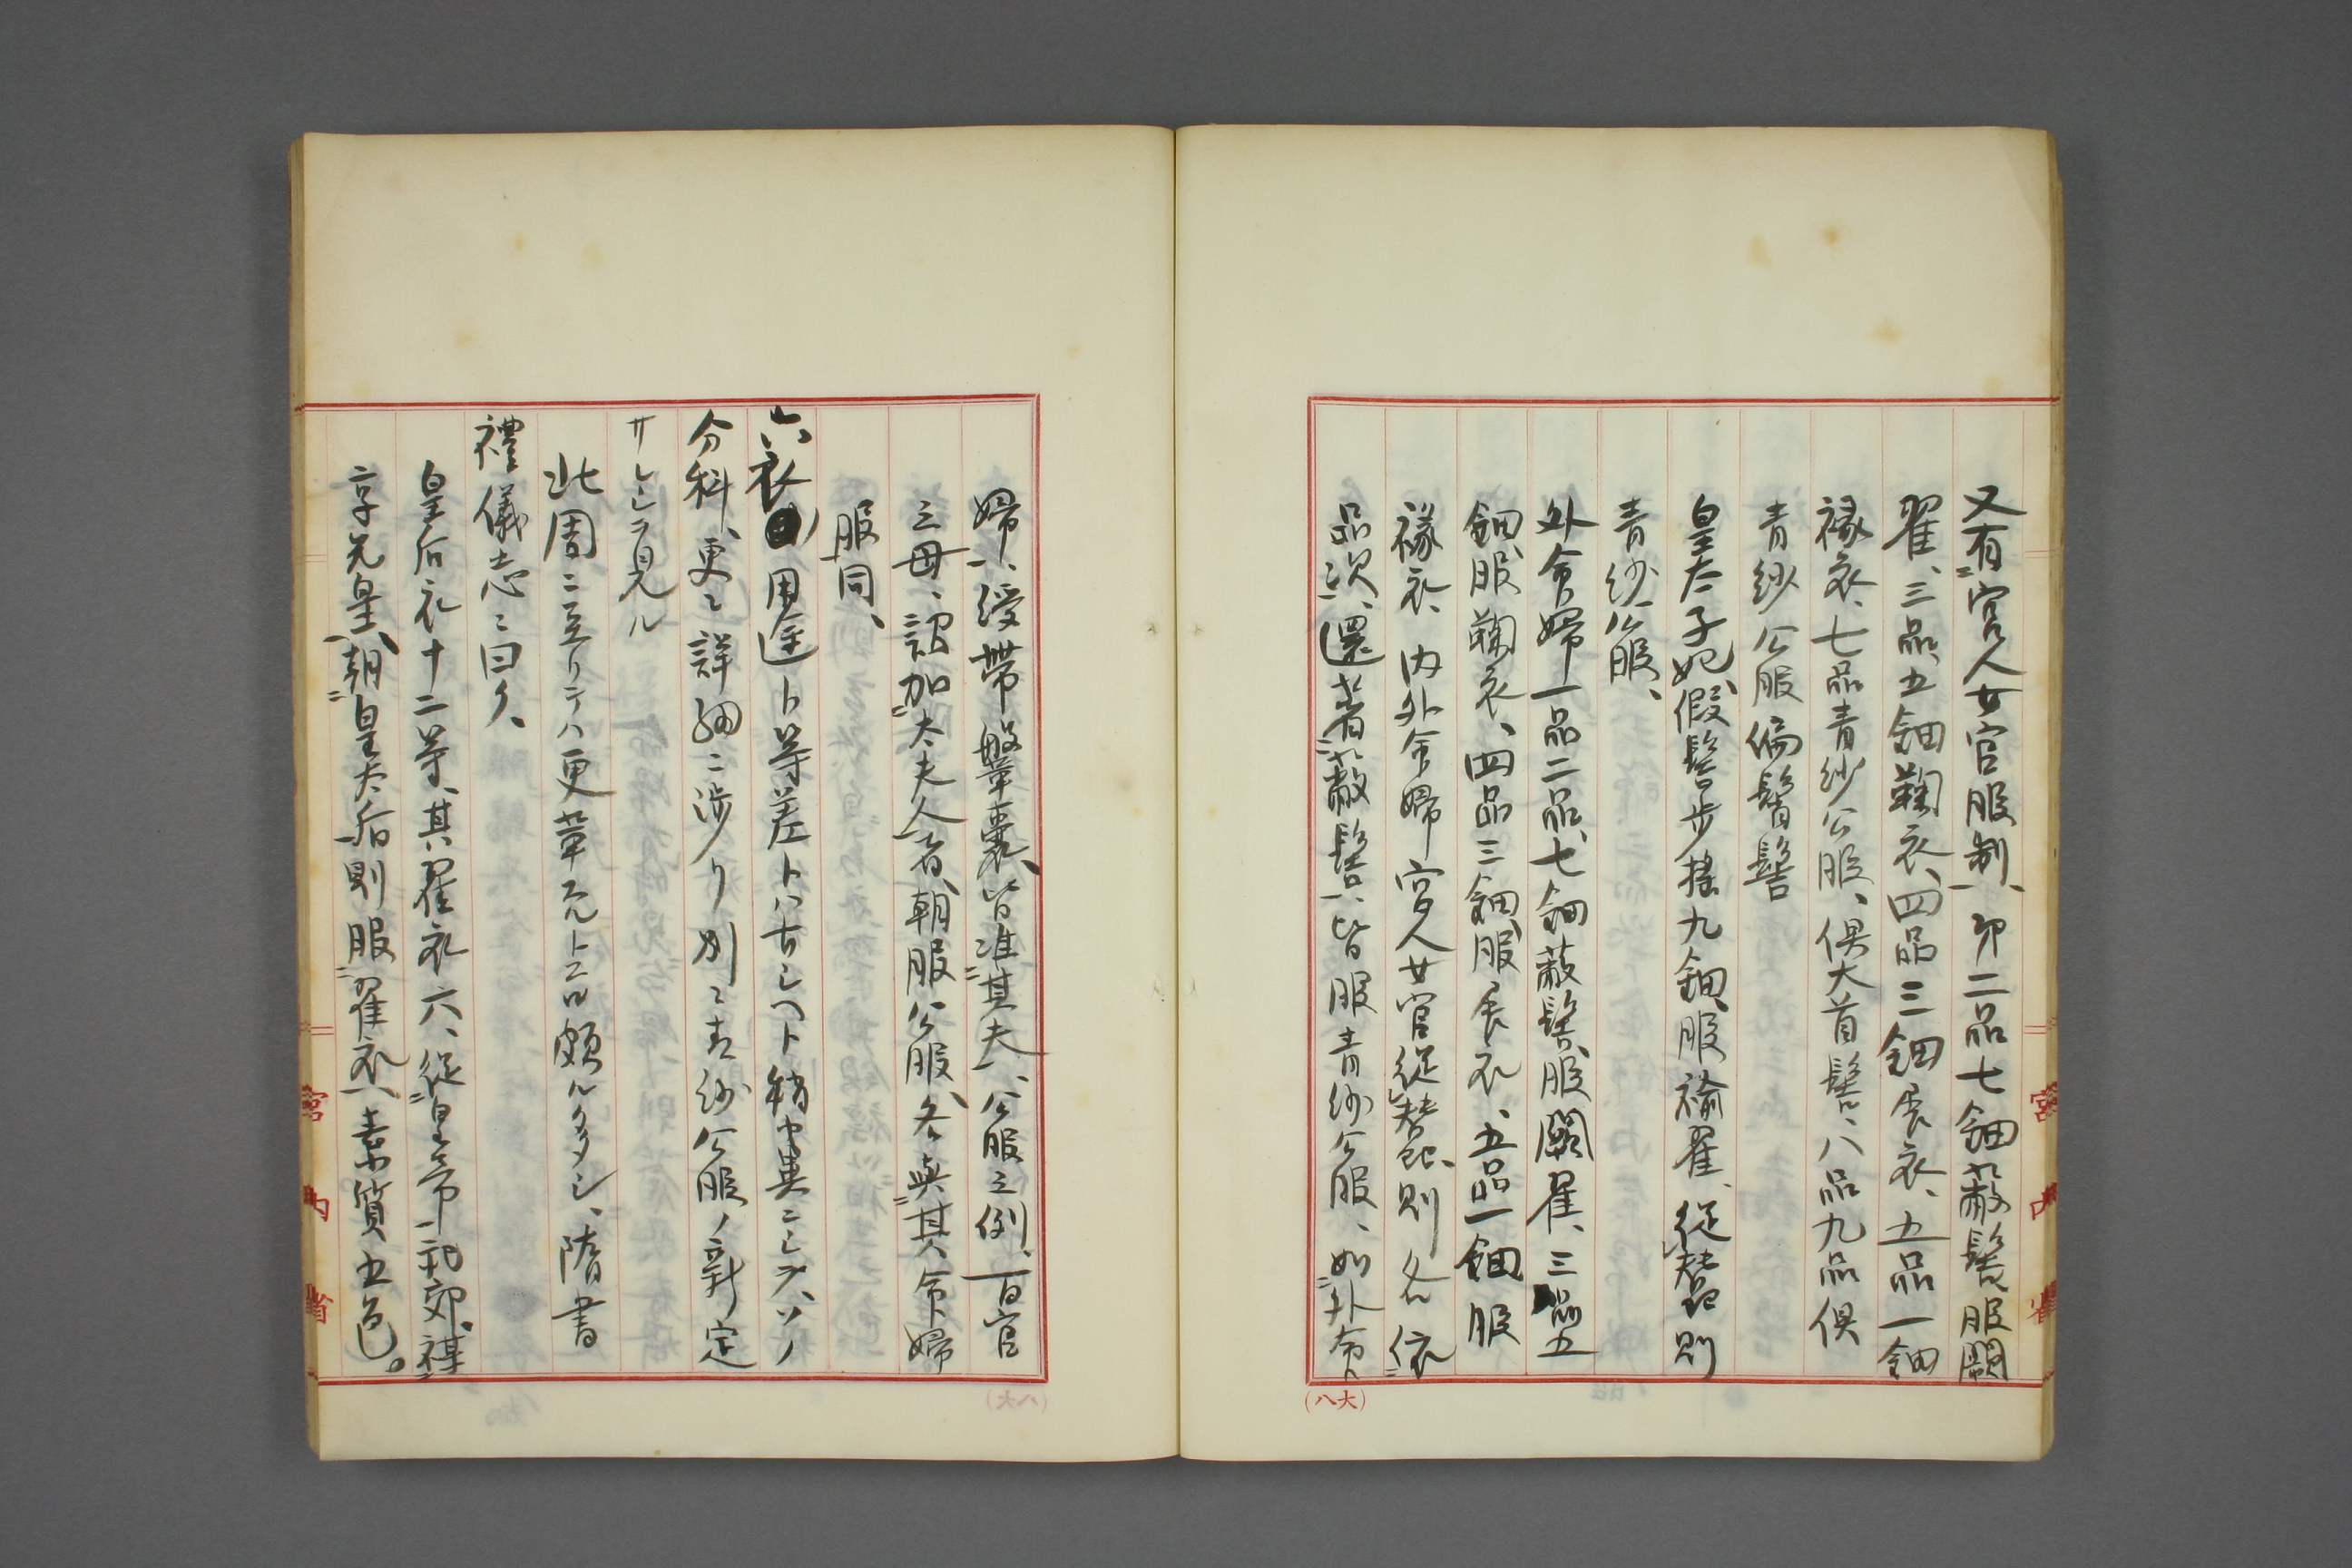 又有宮人女官服制、第二品七鈿蔽髻、服闕
翟、三品五鈿鞠衣、四品三鈿展衣、五品一鈿
褖衣、七品青紗公服、俱大首髻、八品九品俱
青紗公服偏髾髻
皇太子妃、假髻步搖九鈿、服褕翟、從蠶則
青紗公服、
外命婦一品二品、七鈿蔽髻、服闕翟、三品五
鈿、服鞠衣、四品三鈿、服展衣、五品一鈿服
褖衣、内外命婦宮人女官從蠶、則各依
品次、還著蔽髻、皆服青紗公服、如外命
(八大)
婦、綬帶鞶囊、皆準其夫、公服之例、百官
之母、詔加太夫人者、朝服公服、各與其命婦
服同、
六衣ノ用途ト等差トハ古シヘト稍中異ニシテ、ソノ
分科、更ニ詳細ニ渉リ別ニ青紗公服ノ新定
サレシヲ見ル
北周ニ至リテハ更革スル所頗ル多シ、隋書
禮儀志ニ曰ク、
皇后衣十二等、其翟衣六、從皇帝祀郊禖
享先皇、朝皇太后則服翟衣、素質五色。
宮内省
宮内省